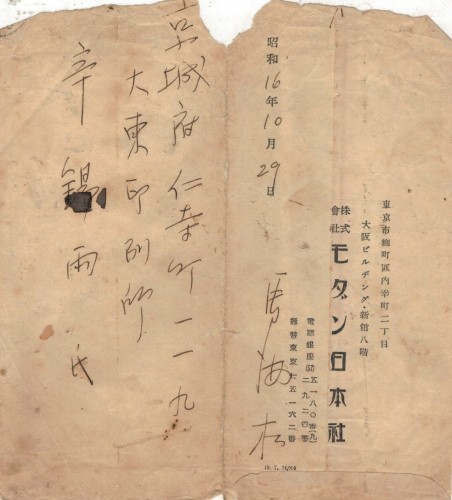 東京市麹町區內幸町二丁目
大阪ビルヂング・新館八階
株式會社モダン日本社
電話銀座
二九二四番
振替東京七五一六二番
馬海松
昭和16年10月29日
京城府仁寺町一一九
大東印刷所
辛錫雨氏